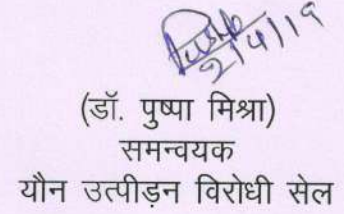 2/4/19
(डॉ. पुष्पा मिश्रा)
समन्वयक
यौन उत्पीड़न विरोधी सेल